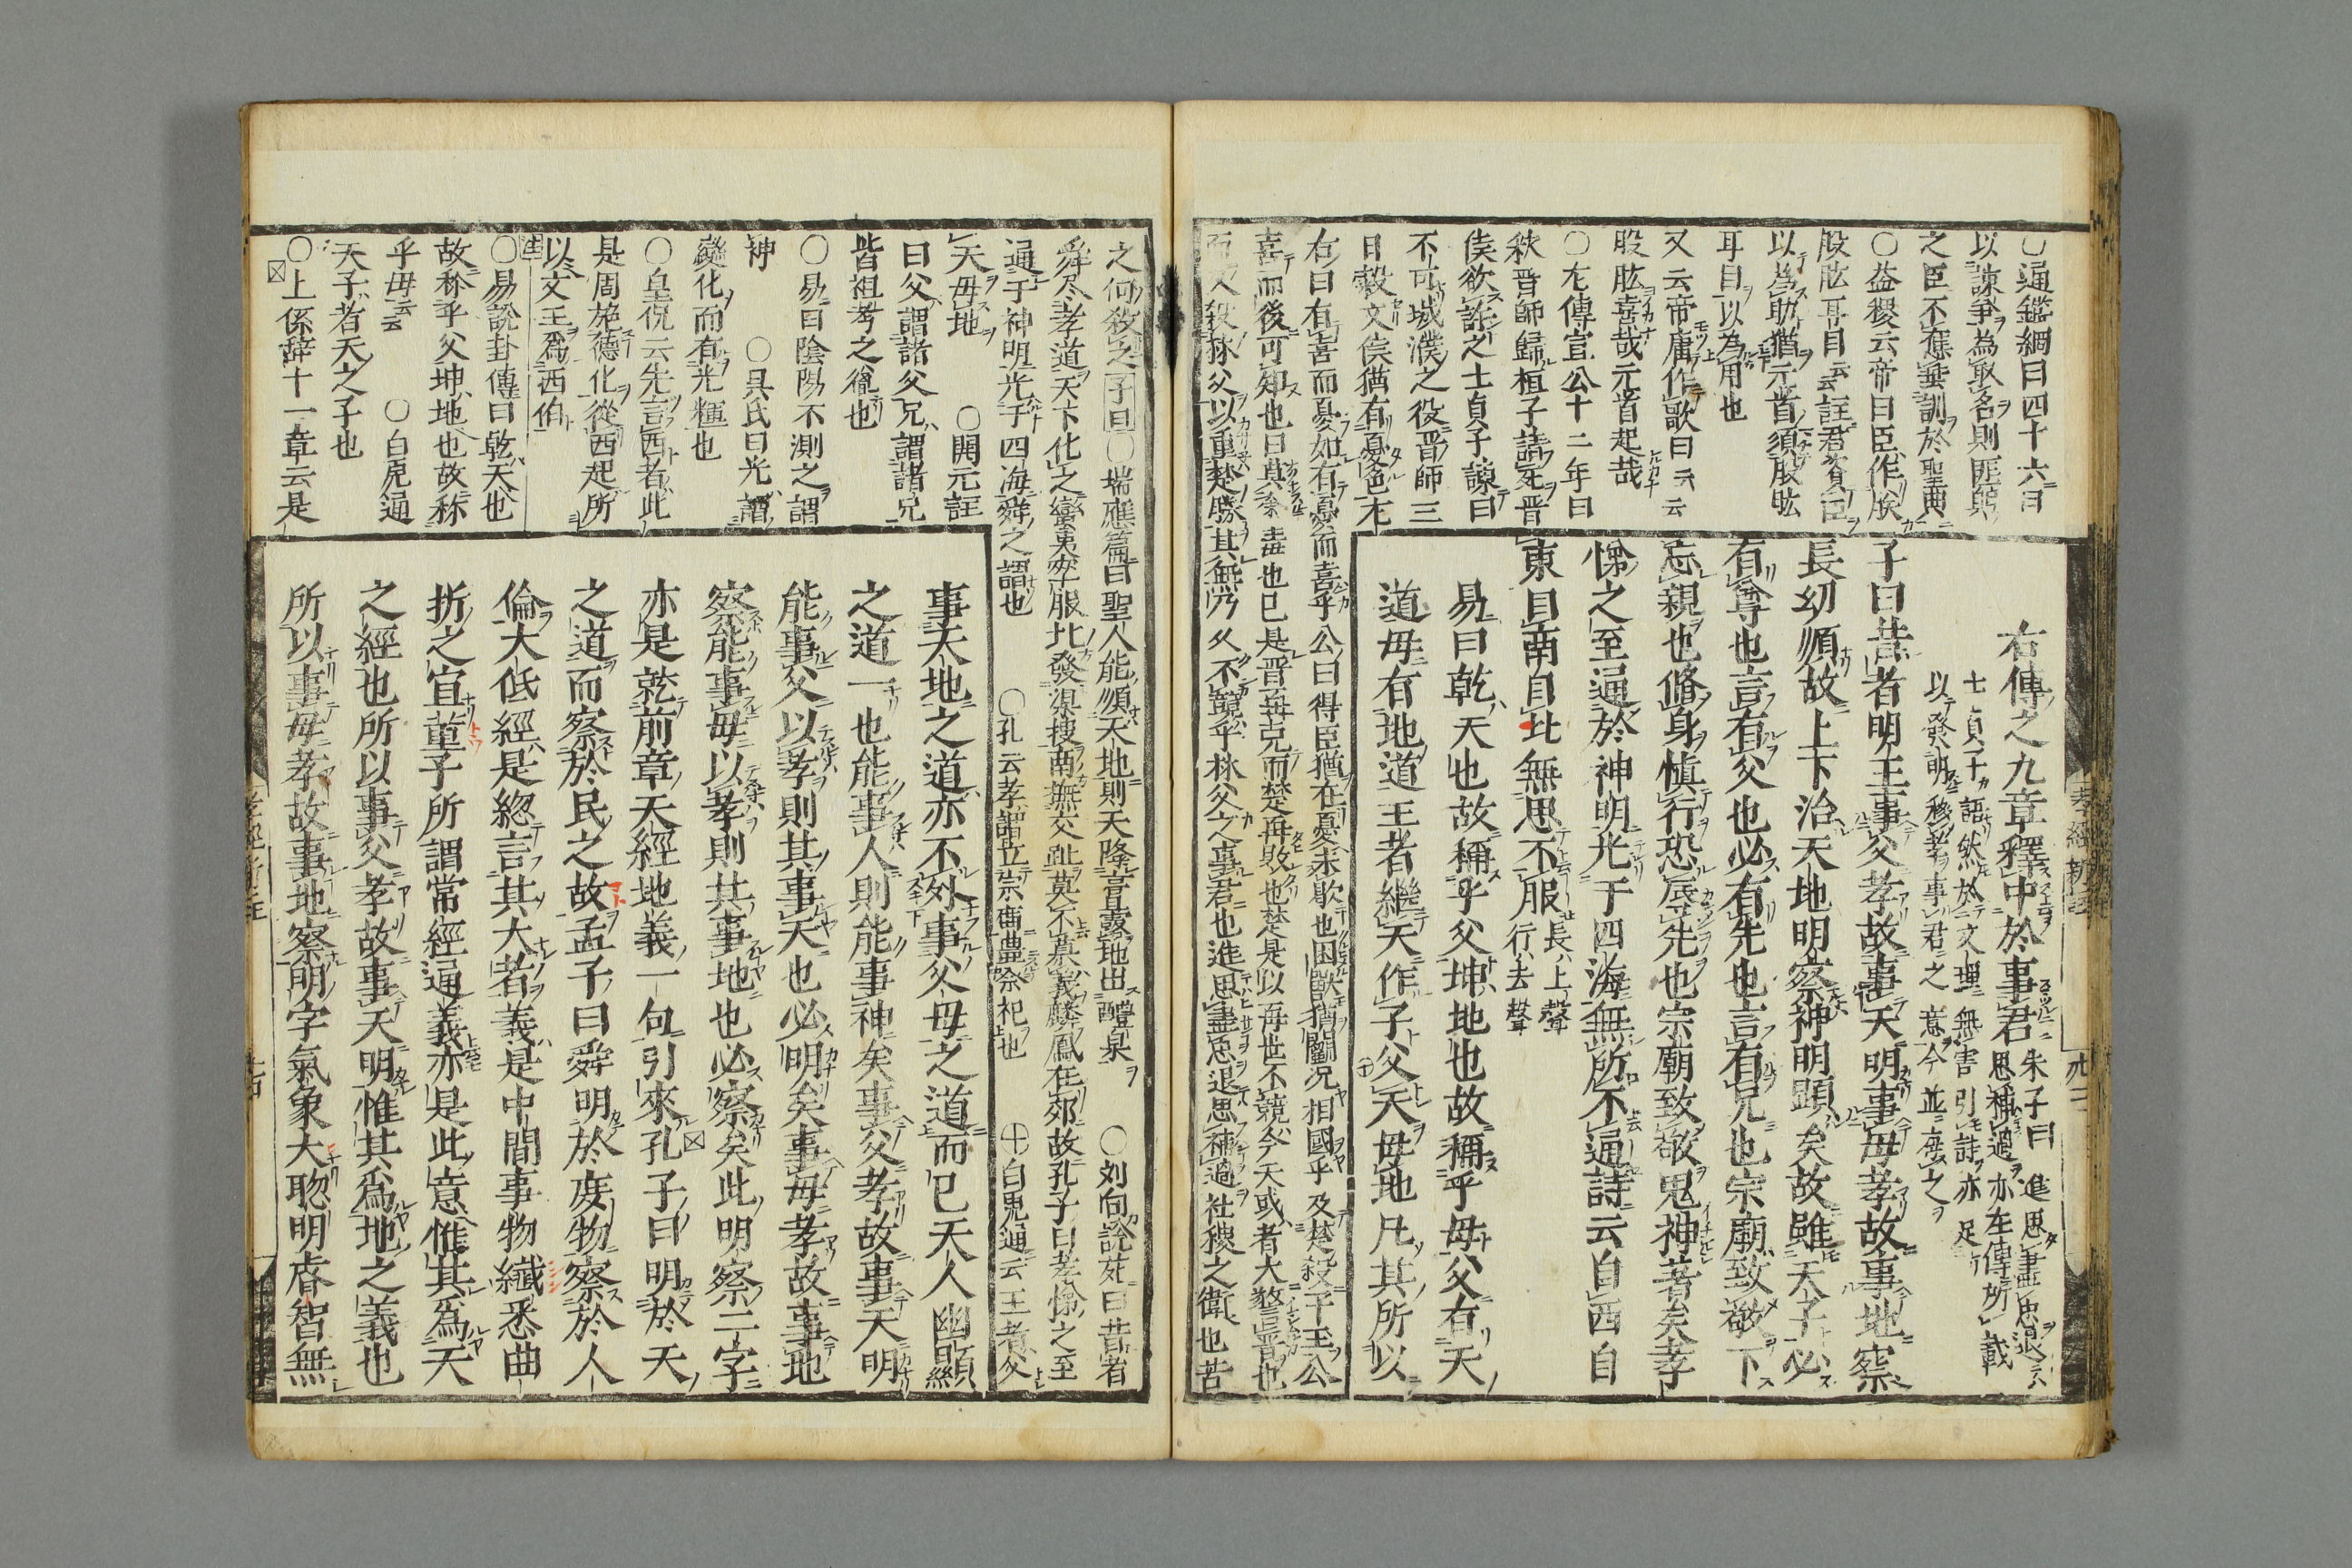 右傳之九章釋中於事君
朱子曰進思盡忠退
思補過亦左傳所載
士貞子語然於文理無害引詩亦足
以發明移孝事君之意今並存之
子曰昔者明王事父孝故事天明事母孝故事地察
長幼順故上下治天地明察神明顯矣故雖天子必
有尊也言有父也必有先也言有兄也宗廟致敬不
忘親也脩身愼行恐辱先也宗廟致敬鬼神著矣孝
悌之至通於神明光于四海無所不通詩云自西自
東自南自北無思不服
長上聲
行去聲
易曰乾天也故稱乎父坤地也故稱乎母父有天
道母有地道王者繼天作子父天母地凡其所以
通鑑綱目四十六曰
以諫爭為取名則匪躬
之臣不
垂訓於聖典
○益稷云帝曰臣作朕
股肱耳目云云註君資臣
以為助猶元首須股肱
耳目以為用也
又云帝庸作歌曰云云
股肱喜哉元首起哉
○左傳宣公十二年曰
秋晋師歸桓子請死晋
侯欲許之士貞子諫曰
不可城濮之役晋師三
日穀文侯猶有憂色左
右曰有喜而憂如有憂而喜乎公曰得臣猶在憂未歇也困獸猶鬪况相國乎及楚殺子玉公
喜而後可知也曰莫余毒也已是晋再克而楚再敗也楚是以再世不競今天或者大警晋也
而又殺林父以重楚勝其無乃久不競乎林父之事君也進思盡忠退思補過社稷之衛也若
之何殺之
子曰
○瑞應篇曰聖人能順天地則天降膏露地出醴泉
○刘向說苑曰昔者
舜尽孝道天下化之蠻夷率服北發渠搜南撫交趾莫不慕義麟鳳在郊故孔子曰孝悌之至
通于神明光于四海舜之謂也
○孔云孝謂立宗廟豊祭祀也
白虎通云王者父
天母地
○開元註
曰父謂諸父兄謂諸兄
皆祖考之胤也
○易曰陰陽不測之謂
神
○呉氏曰光謂
變化而有光輝也
○皇侃云先言西者此
是周施德化從西起所
以文王為西伯
○易說卦傳曰乾天也
故称乎父坤地也故称
乎母云云
○白虎通
天子者天之子也
○上係辞十一章云是
事天地之道亦不外事父母之道而已天人幽顯
之道一也能事人則能事神矣事父孝故事天明
能事父以孝則其事天也必明矣事母孝故事地
察能事母以孝則其事地也必察矣此明察二字
亦是乾前章天經地義一句引來孔子曰明於天
之道而察於民之故孟子曰舜明於庶物察於人
倫大低經是總言其大者義是中間事物纎悉曲
折之宜董子所謂常經通義亦是此意惟其為天
之經也所以事父孝故事天明惟其為地之義也
所以事母孝故事地察明字氣象大聦明睿智無